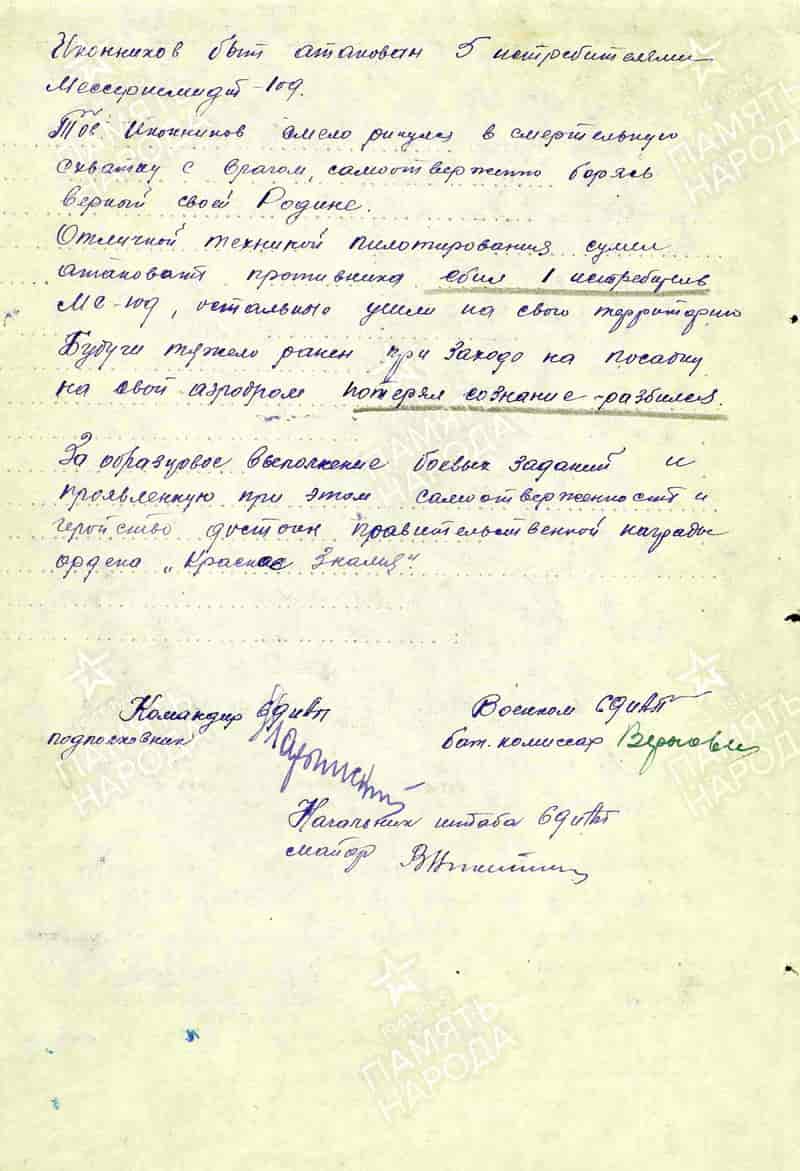 Иконников быт атакован 5 истребителями
Мессершмидт-109.
Тов. Иконников смело ринулся в смертельную
схватку с врагом, самоотверженно борясь
верный своей Родине.
Отличной техникой пилотирования сумел
атаковат противника сбил 1 истребитель
МС-109, остальные ушли на свою территорию
Будучи тяжело ранен при заходе на посадку
на свой аэродром потерял сознание-разбился.
За образцовое выполнение боевых заданий и
проявленную при этом самоотверженность и
геройство достоин правительственной награды
ордена „Красное Знамя".
Командир 69иАП
подполковник
Военком 69иАП
бат. комиссар
Начальник штаба 69иАП
майор
ПАМЯТЬ НАРОДА